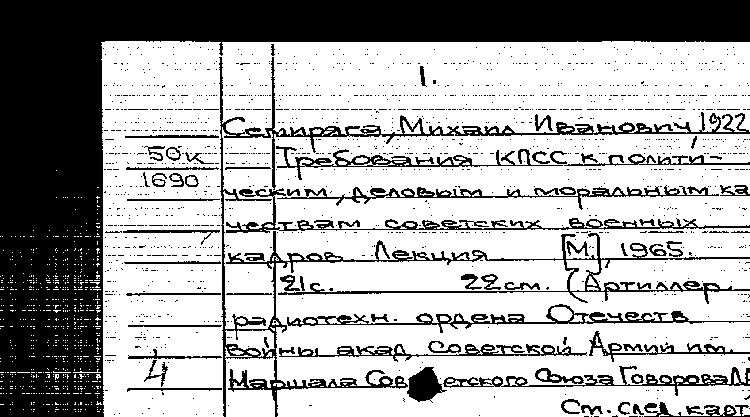 1.
Семиряга, Михаил Иванович, 1922
50к
1690
Требования КПСС к полити-
ческим, деловым и моральным ка
чествам советских военных
кадров. Лекция [М.], 1965.
21с. 22см. (Артиллер.
радиотехн. ордена Отечеств.
войны акад. Советской Армии им.
4
Маршала Советского Союза Говорова Л
См. след. карт